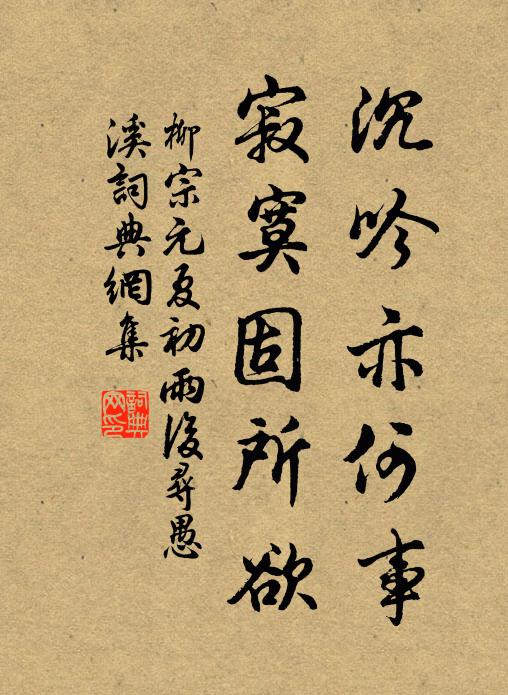 沉吟亦何事
寂寞固所欲
柳宗元夏初雨後尋愚
溪詞典網集
詞典
网印